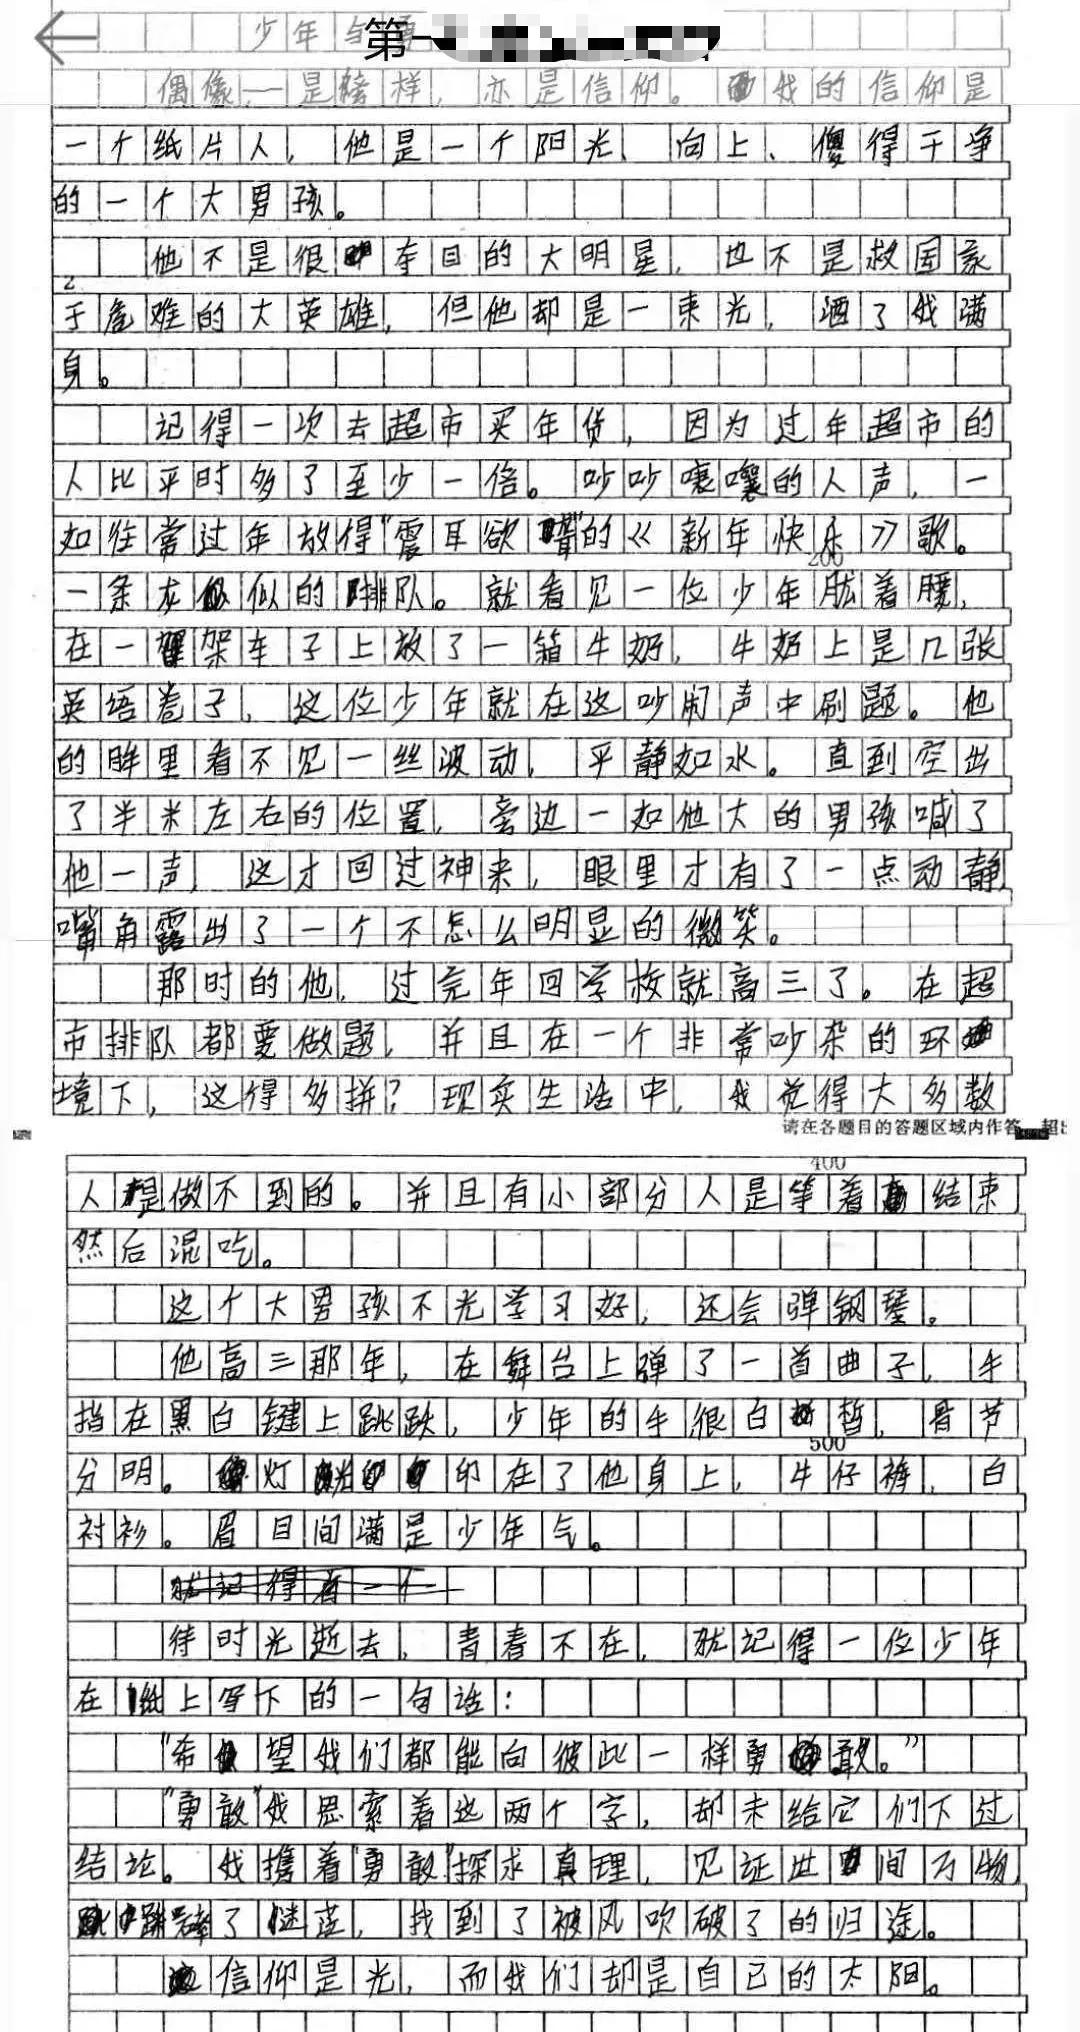 少年与
第一
偶像,一是榜样,亦是信仰。我的信仰是
一个纸片人,他是一个阳光、向上、傻得干净
的一个大男孩。
他不是很夺目的大明星,也不是救国家
于危难的大英雄,但他却是一束光,洒了我满
身。
记得一次去超市买年货,因为过年超市的
人比平时多了至少一倍。吵吵嚷嚷的人声,一
如往常过年放得“震耳欲聋”的《新年快乐》歌。
200
一条龙似的排队。就看见一位少年肱着腰,
在一架车子上放了一箱牛奶,牛奶上是几张
英语卷子,这位少年就在这吵闹声中刷题。他
的眸里看不见一丝波动,平静如水。直到空出
了半米左右的位置,旁边一如他大的男孩喊了
他一声,这才回过神来,眼里才有了一点动静,
嘴角露出了一个不怎么明显的微笑。
那时的他,过完年回学校就高三了。在超
市排队都要做题,并且在一个非常吵杂的环
境下,这得多拼?现实生活中,我觉得大多数
请在各题目的答题区域内作答,超出
400
人是做不到的。并且有小部分人是等着结束
然后混吃。
这个大男孩不光学习好,还会弹钢琴。
他高三那年,在舞台上弹了一首曲子,手
指在黑白键上跳跃,少年的手很白皙,骨节
500
分明。灯光印在了他身上,牛仔裤,白
衬衫。眉目间满是少年气。
就记得有一个
待时光逝去,青春不在,就记得一位少年
在纸上写下的一句话:
“希望我们都能向彼此一样勇敢。”
“勇敢”我思索着这两个字,却未给它们下过
结论。我携着“勇敢”探求真理,见证世间万物,
踏碎了迷茫,找到了被风吹破了的归途。
信仰是光,而我们却是自己的太阳。